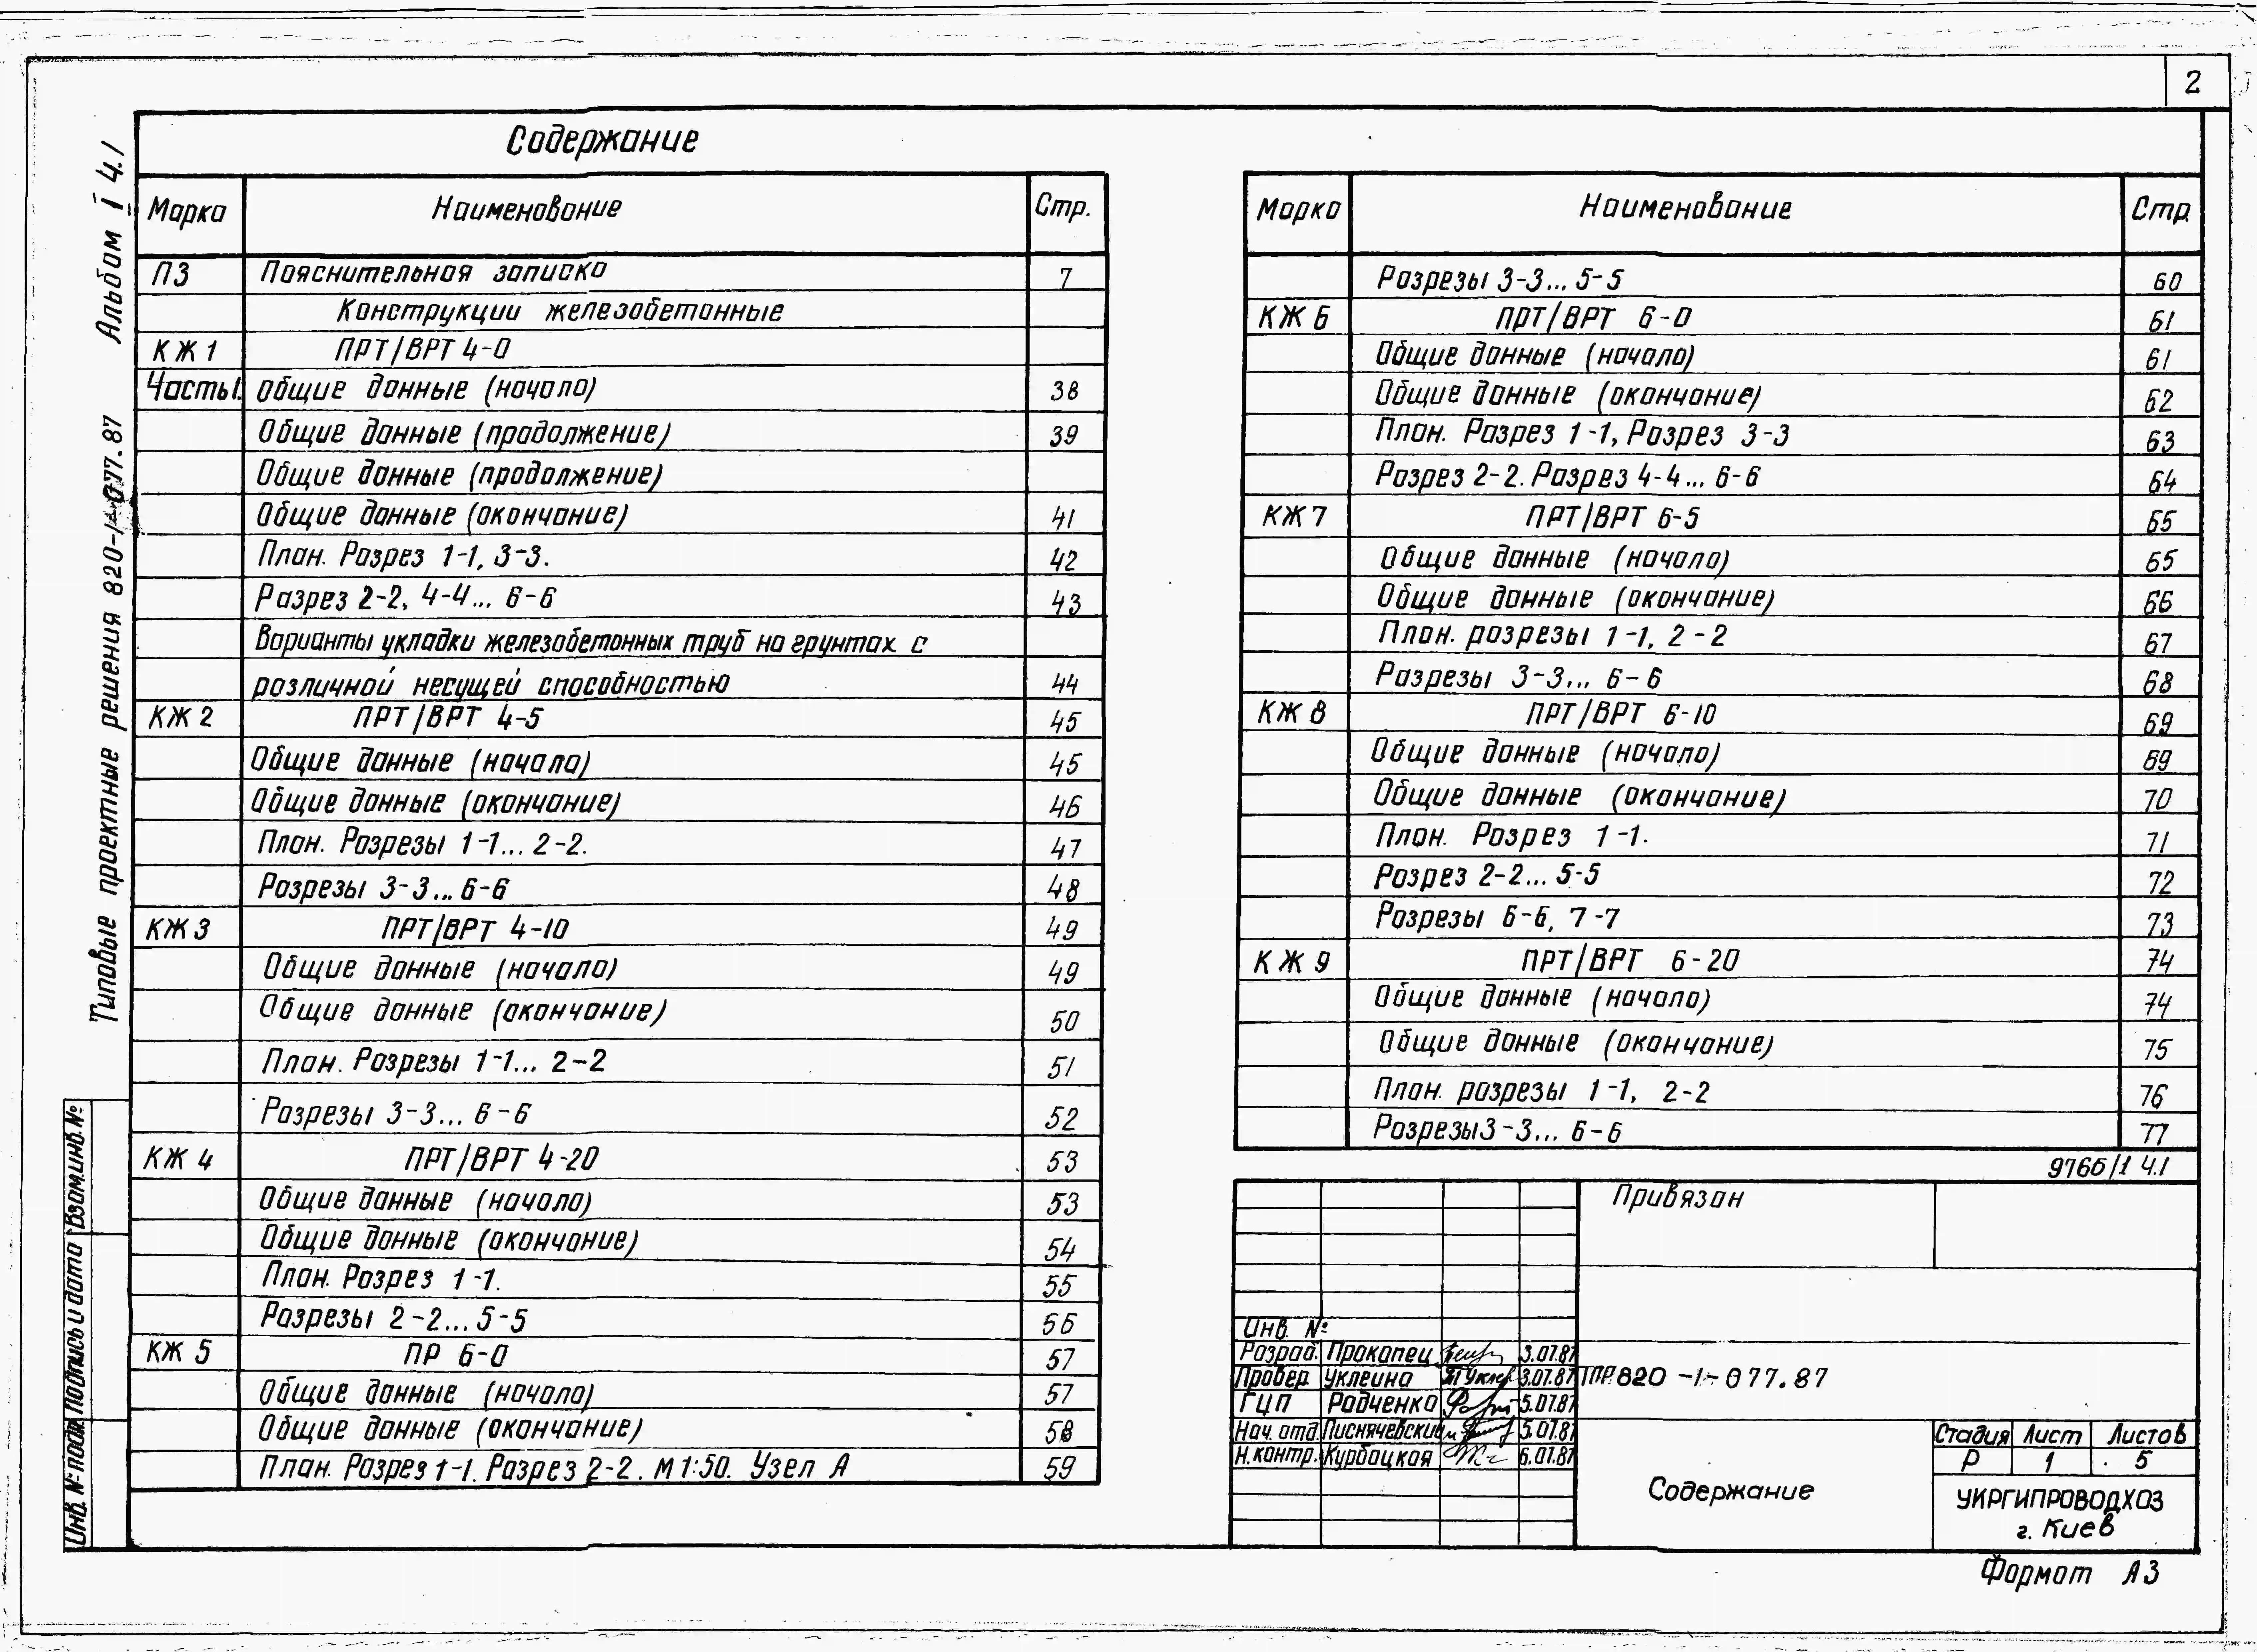 2
Содержание
Марка Наименование Стр.
ПЗ Пояснительная записка 7
Конструкции железобетонные
КЖ 1 ПРТ/ВРТ 4-0
Часть1. Общие данные (начало) 38
Общие данные (продолжение) 39
Общие данные (продолжение)
Общие данные (окончание) 41
План. Разрез 1-1, 3-3. 42
Разрез 2-2, 4-4... 6-6 43
Варианты укладки железобетонных труб на грунтах с
различной несущей способностью 44
КЖ 2 ПРТ/ВРТ 4-5 45
Общие данные (начало) 45
Общие данные (окончание) 46
План. Разрезы 1-1... 2-2. 47
Разрезы 3-3... 6-6 48
КЖ 3 ПРТ/ВРТ 4-10 49
Общие данные (начало) 49
Общие данные (окончание) 50
План. Разрезы 1-1... 2-2 51
Разрезы 3-3... 6-6 52
КЖ 4 ПРТ/ВРТ 4-20 53
Общие данные (начало) 53
Общие данные (окончание) 54
План. Разрез 1-1. 55
Разрезы 2-2... 5-5 56
КЖ 5 ПР 6-0 57
Общие данные (начало) 57
Общие данные (окончание) 58
План. Разрез 1-1. Разрез 2-2. М 1:50. Узел А 59
Марка Наименование Стр.
Разрезы 3-3... 5-5 60
КЖ 6 ПРТ/ВРТ 6-0 61
Общие данные (начало) 61
Общие данные (окончание) 62
План. Разрез 1-1, Разрез 3-3 63
Разрез 2-2. Разрез 4-4... 6-6 64
КЖ 7 ПРТ/ВРТ 6-5 65
Общие данные (начало) 65
Общие данные (окончание) 66
План. разрезы 1-1, 2-2 67
Разрезы 3-3... 6-6 68
КЖ 8 ПРТ/ВРТ 6-10 69
Общие данные (начало) 69
Общие данные (окончание) 70
План. Разрез 1-1. 71
Разрез 2-2... 5-5 72
Разрезы 6-6, 7-7 73
КЖ 9 ПРТ/ВРТ 6-20 74
Общие данные (начало) 74
Общие данные (окончание) 75
План. разрезы 1-1, 2-2 76
Разрезы3-3... 6-6 77
9766/1 Ч.1
Привязан
Инв. №
Разраб. Прокопец 3.07.87
Провер. Уклеина 3.07.87
ГИП Радченко 5.07.87
Нач. отд. 5.07.87
Н.контр. Курбацкая 6.07.87
ТПР 820-1-077.87
Содержание
Стадия Лист Листов
Р 1 5
УКРГИПРОВОДХОЗ
г. Киев
Формат А3
Типовые проектные решения 820-1-077.87 Альбом I Ч.1
Инв. № подл. Подпись и дата Взам.инв.№